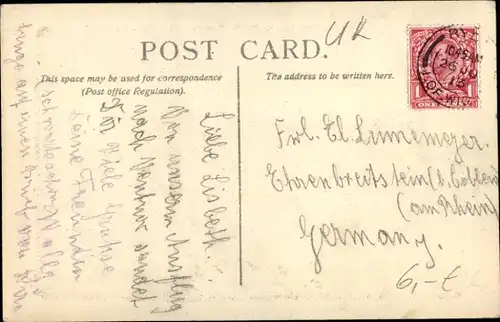 UK
POST CARD.
This space may be used for correspondence
(Post office Regulation).
The address to be written here.
RYDE
10.45 AM
I. OF WIGHT
ONE PENNY
Liebe Lisbeth.
Von unserm Ausflug
nach Ventnor sendet
Dir viele Grüsse
Deine Freundin
Ally.
Frl. El. Lünnemeyer.
Ehrenbreitstein (b. Coblenz
(am Rhein)
Germany.
6,-€